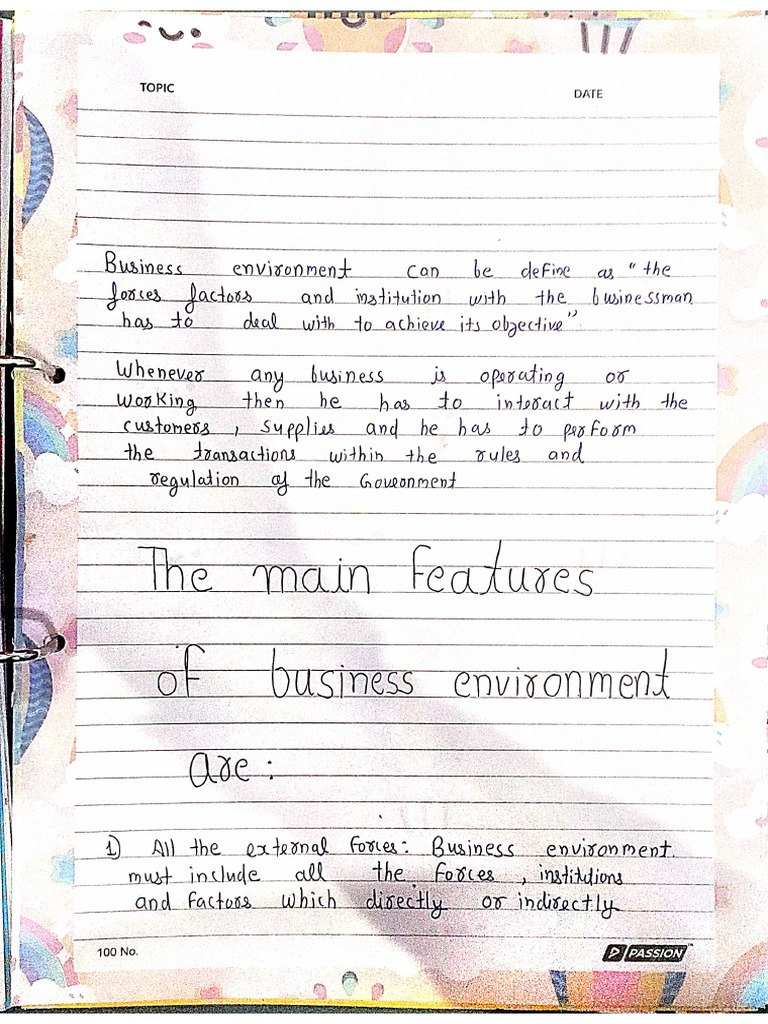 TOPIC
DATE
Business environment can be define as "the
forces factors and institution with the businessman
has to deal with to achieve its objective".
Whenever any business is operating or
working then he has to interact with the
customers, supplies and he has to perform
the transactions within the rules and
regulation of the Government
The main features
of business environment
are:
1) All the external forces: Business environment.
must include all the forces, institutions
and factors which directly or indirectly
100 No.
PASSION